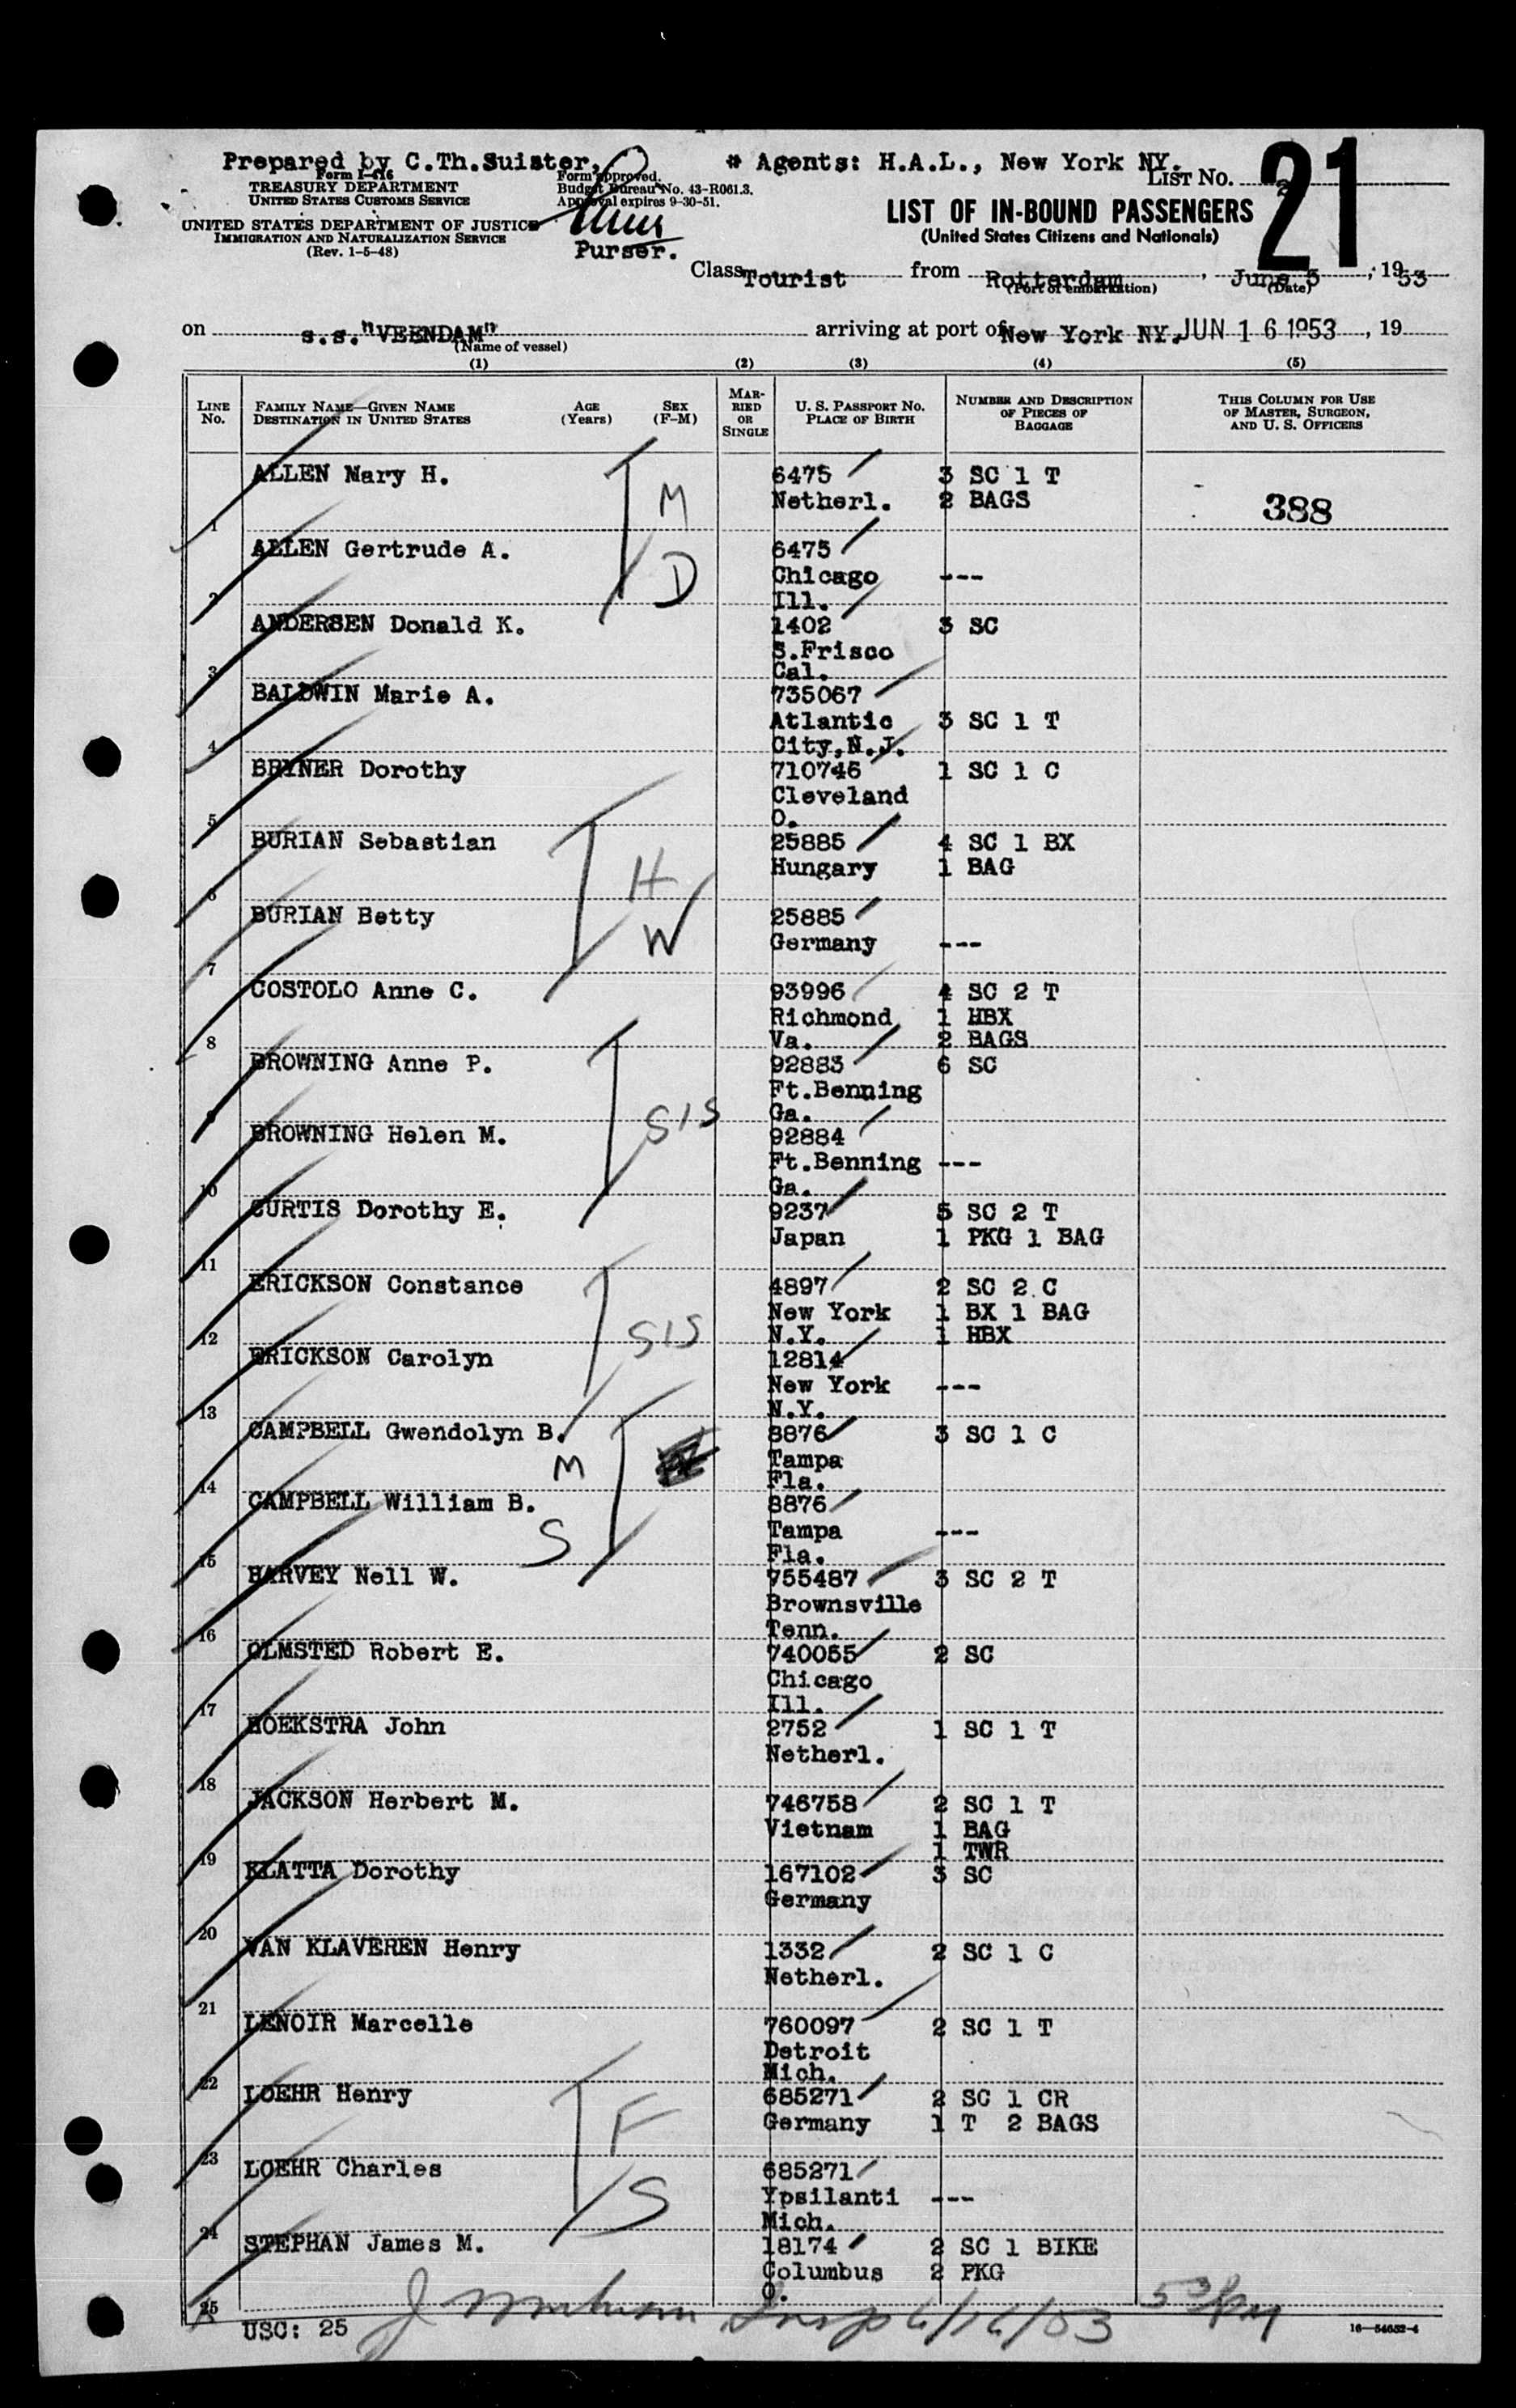 Prepared by C.Th.Suister, * Agents: H.A.L., New York NY.
Form I-416
TREASURY DEPARTMENT
UNITED STATES CUSTOMS SERVICE
UNITED STATES DEPARTMENT OF JUSTICE
IMMIGRATION AND NATURALIZATION SERVICE
(Rev. 1-5-48)
Form approved.
Budget Bureau No. 43-R061.3.
Approval expires 9-30-51.
Purser.
LIST NO. 2
21
LIST OF IN-BOUND PASSENGERS
(United States Citizens and Nationals)
Class Tourist from Rotterdam, June 3, 1953
(Port of embarkation) (Date)
on s.s."VEENDAM" arriving at port of New York NY. JUN 16 1953, 19
(Name of vessel)
(1) (2) (3) (4) (5)
LINE No. FAMILY NAME—GIVEN NAME DESTINATION IN UNITED STATES AGE (Years) SEX (F-M) MARRIED OR SINGLE U. S. PASSPORT NO. PLACE OF BIRTH NUMBER AND DESCRIPTION OF PIECES OF BAGGAGE THIS COLUMN FOR USE OF MASTER, SURGEON, AND U. S. OFFICERS
ALLEN Mary H. M 6475 3 SC 1 T
Netherl. 2 BAGS 388
1
ALLEN Gertrude A. D 6475
Chicago ---
2 Ill.
ANDERSEN Donald K. 1402 3 SC
S.Frisco
3 Cal.
BALDWIN Marie A. 735067
Atlantic 3 SC 1 T
4 City,N.J.
BRYNER Dorothy 710746 1 SC 1 C
Cleveland
5 O.
BURIAN Sebastian H 25885 4 SC 1 BX
Hungary 1 BAG
6
BURIAN Betty W 25885
Germany ---
7
COSTOLO Anne C. 93996 4 SC 2 T
Richmond 1 HBX
8 Va. 2 BAGS
BROWNING Anne P. 92883 6 SC
Ft.Benning
9 Ga.
SIS
BROWNING Helen M. 92884
Ft.Benning ---
10 Ga.
CURTIS Dorothy E. 9237 5 SC 2 T
Japan 1 PKG 1 BAG
11
ERICKSON Constance 4897 2 SC 2 C
New York 1 BX 1 BAG
12 SIS N.Y. 1 HBX
ERICKSON Carolyn 12814
New York ---
13 N.Y.
CAMPBELL Gwendolyn B. 8876 3 SC 1 C
M Tampa
14 Fla.
CAMPBELL William B. 8876
S Tampa ---
15 Fla.
HARVEY Nell W. 755487 3 SC 2 T
Brownsville
16 Tenn.
OLMSTED Robert E. 740055 2 SC
Chicago
17 Ill.
HOEKSTRA John 2752 1 SC 1 T
Netherl.
18
JACKSON Herbert M. 746758 2 SC 1 T
Vietnam 1 BAG
19 1 TWR
KLATTA Dorothy 167102 3 SC
Germany
20
VAN KLAVEREN Henry 1332 2 SC 1 C
Netherl.
21
LENOIR Marcelle 760097 2 SC 1 T
Detroit
22 Mich.
LOEHR Henry 685271 2 SC 1 CR
F Germany 1 T 2 BAGS
23
LOEHR Charles 685271
S Ypsilanti ---
24 Mich.
STEPHAN James M. 18174 2 SC 1 BIKE
Columbus 2 PKG
25 O.
USC: 25 Insp 6/16/53
16—54652-4